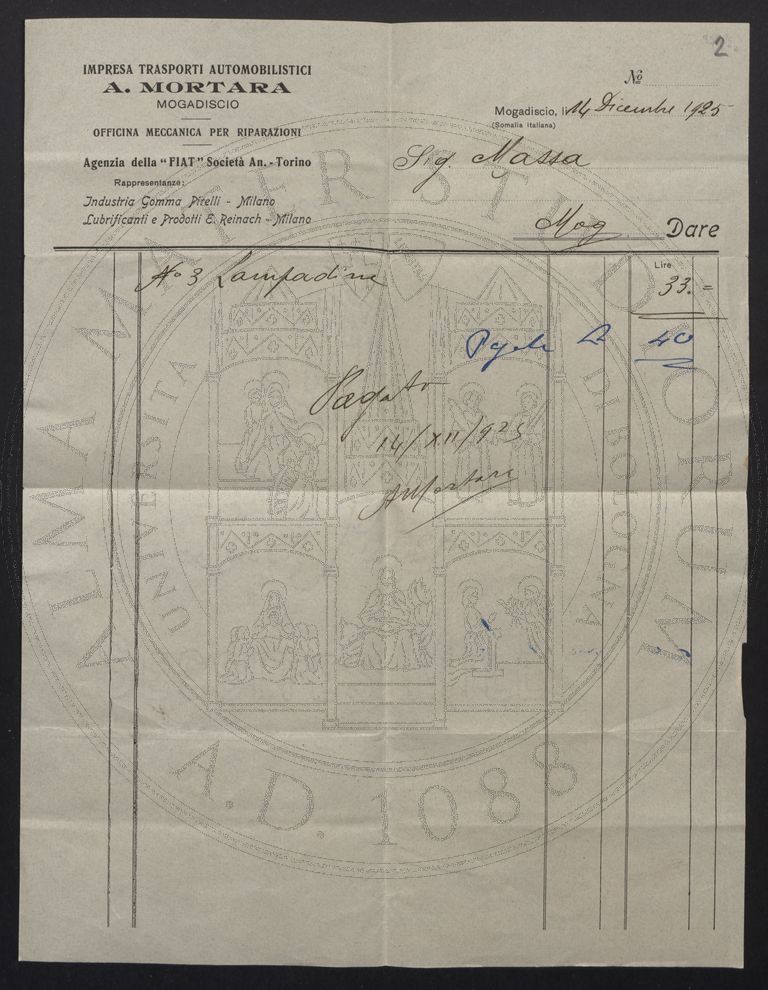 2
IMPRESA TRASPORTI AUTOMOBILISTICI
A. MORTARA
MOGADISCIO
OFFICINA MECCANICA PER RIPARAZIONI
Agenzia della "FIAT" Società An. - Torino
Rappresentanze:
Industria Gomma Pirelli - Milano
Lubrificanti e Prodotti E. Reinach - Milano
No
Mogadiscio, li 14 Dicembre 1925
(Somalia Italiana)
Sig. Massa
Mog. Dare
Lire
No 3 Lampadine 33.=
40
Pagato
14/XII/925
AMortara
ALMA MATER STUDIORUM
UNIVERSITA DI BOLOGNA
A.D. 1088